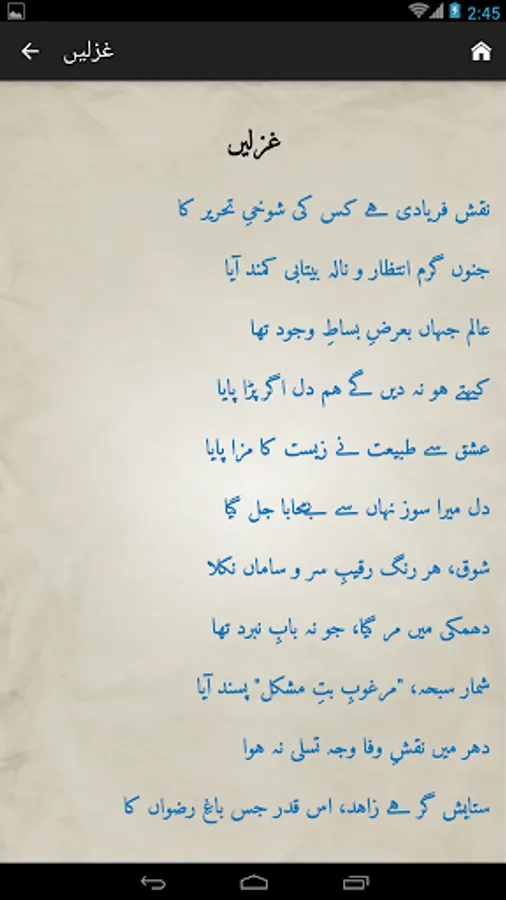 2:45
غزلیں
غزلیں
نقش فریادی ہے کس کی شوخیِ تحریر کا
جنوں گرم انتظار و نالہ بیتابی کمند آیا
عالم جہاں بعرضِ بساطِ وجود تھا
کہتے ہو نہ دیں گے ہم دل اگر پڑا پایا
عشق سے طبیعت نے زیست کا مزا پایا
دل میرا سوز نہاں سے بےمحابا جل گیا
شوق، ہر رنگ رقیبِ سر و ساماں نکلا
دھمکی میں مر گیا، جو نہ بابِ نبرد تھا
شمار سبحہ، "مرغوبِ بتِ مشکل" پسند آیا
دہر میں نقشِ وفا وجہ تسلی نہ ہوا
ستایش گر ہے زاہد، اس قدر جس باغِ رضواں کا